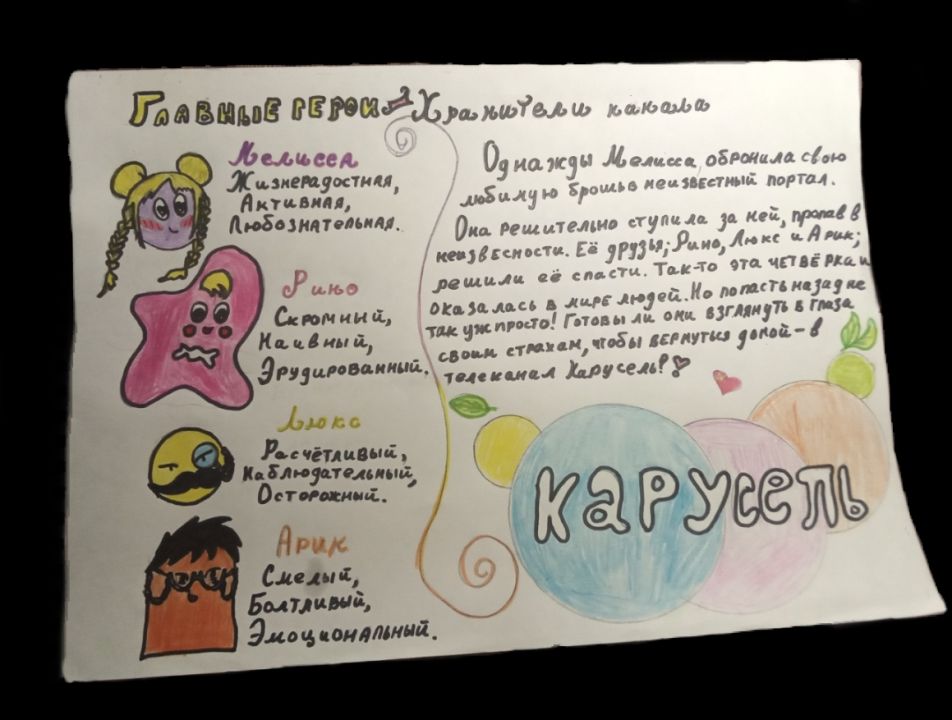 Главные герои - Хранители канала
Мелисса
Жизнерадостная,
Активная,
Любознательная.
Рино
Скромный,
Наивный,
Эрудированный.
Люкс
Расчётливый,
Наблюдательный,
Осторожный.
Арик
Смелый,
Болтливый,
Эмоциональный.
Однажды Мелисса, обронила свою
любимую брошь в неизвестный портал.
Она решительно ступила за ней, пропав в
неизвесности. Её друзья; Рино, Люкс и Арик;
решили её спасти. Так-то эта четвёрка и
оказалась в мире людей. Но попасть назад не
так уж просто! Готовы ли они взглянуть в глаза
своим страхам, чтобы вернуться домой - в
телеканал Карусель?
Карусель